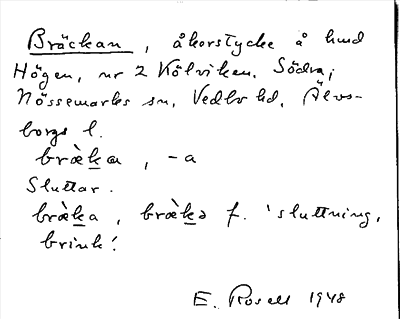 Bräckan, åkerstycke å hmd
Högen, nr 2 Kölviken, Södra;
Nössemarks sn, Vedbo hd, Älvs-
borgs l.
bræ̀ka, -a
Sluttar.
bræ̀ka, bræ̀kə f. 'sluttning,
brink'.
E. Rosell 1948